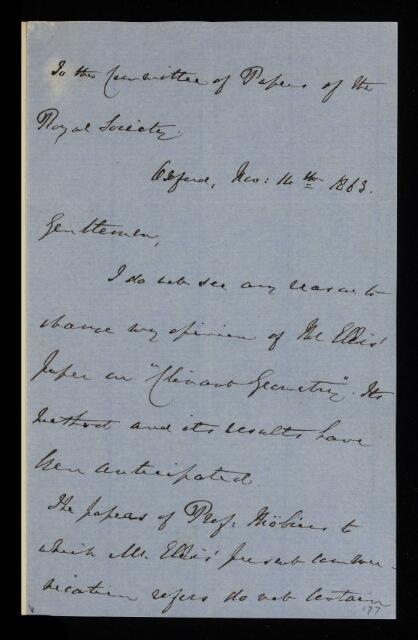 To the Committee of Papers of the
Royal Society.
Oxford, Nov: 14th 1863.
Gentlemen,
I do not see any reason to
change my opinion of Mr Ellis'
Paper on "Clinant Geometry". Its
method and its results have
been anticipated.
The papers of Prof. Möbius to
which Mr. Ellis' present commu-
nication refers do not contain
177